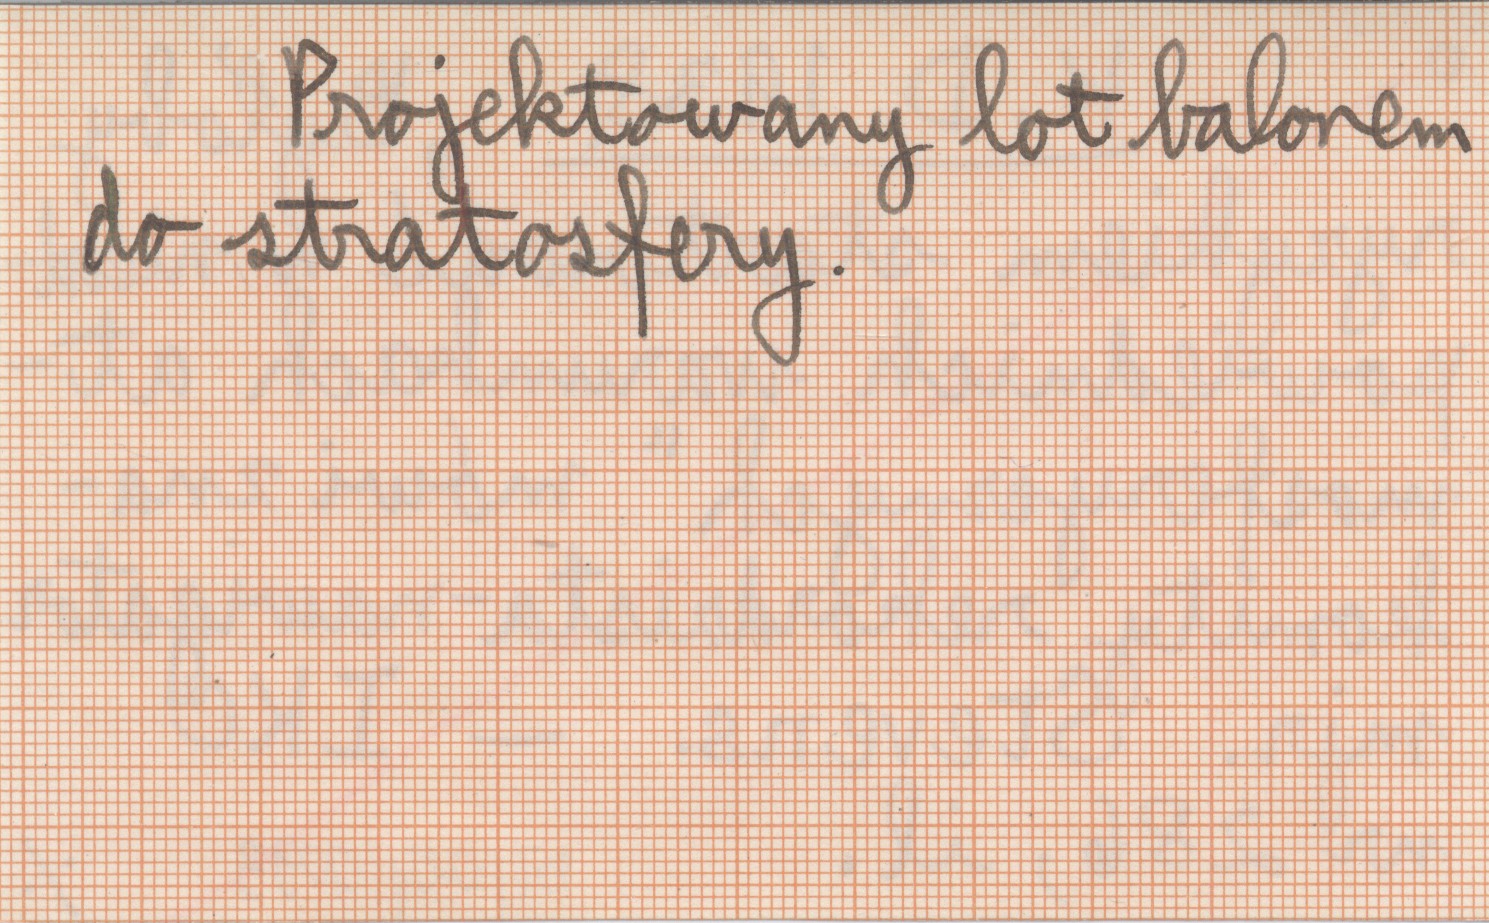 Projektowany lot balonem
do stratosfery.